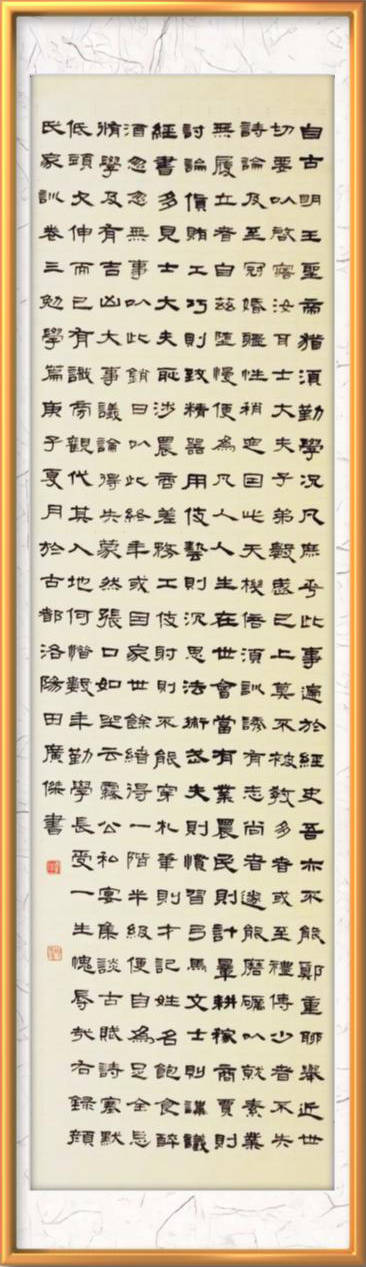 自古明王聖帝猶須勤學況凡庶乎此事遍於經史吾亦不能鄭重聊舉近世
切要以啓寤汝耳士大夫子弟數歲已上莫不被教多者或至禮傳少者不失
詩論及至冠婚體性稍定因此天機倍須訓誘有志尚者遂能磨礪以就素業
無履立者自茲墮慢便為凡人人生在世會當有業農民則計量耕稼商賈則
討論貨賄工巧則致精器用伎藝則沉思法術武夫則慣習弓馬文士則講議
經書多見士大夫恥涉農商差務工伎射則不能穿札筆則才記姓名飽食醉
酒忽忽無事以此銷日以此終年或因家世餘緒得一階半級便自為足全忘
脩學及有吉凶大事議論得失蒙然張口如坐云霧公私宴集談古賦詩塞默
低頭欠伸而已有識旁觀代其入地何惜數年勤學長受一生愧辱哉右錄顏
氏家訓卷三勉學篇庚子夏月於古都洛陽田廣傑書